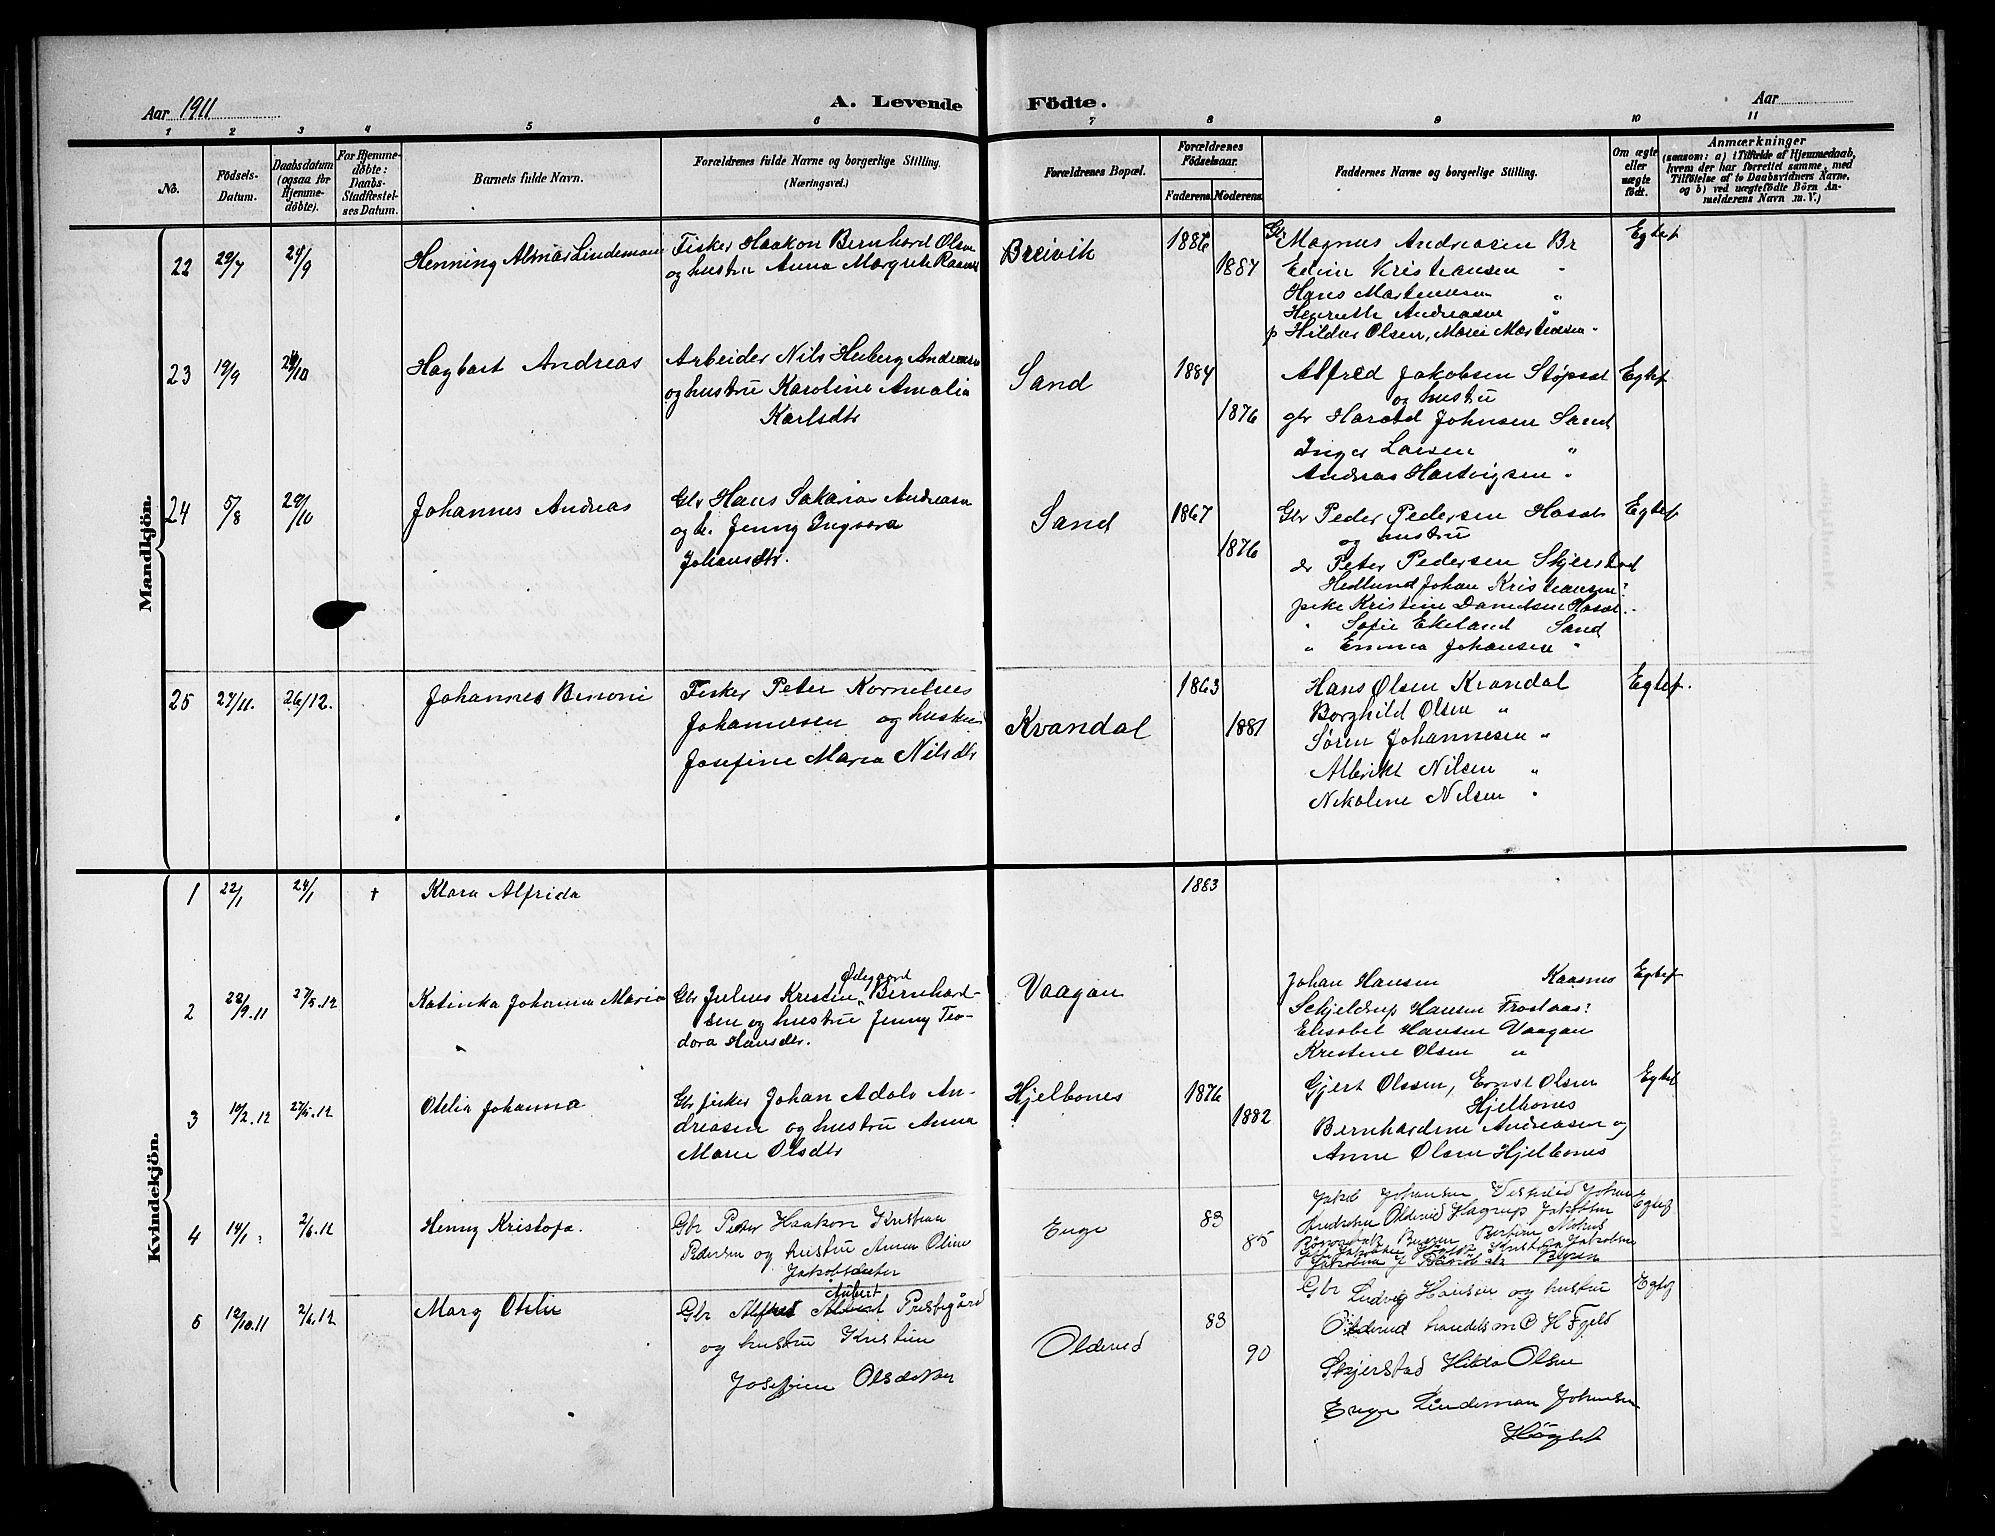 Aar 1911
A. Levende Födte.
Aar
1 2 3 4 5 6 7 8 9 10 11
No.
Födsels-
Datum.
Daabsdatum
(ogsaa for
Hjemme-
döbte).
For Hjemme-
döbte:
Daabs-
Stadfæstel-
ses Datum.
Barnets fulde Navn.
Forældrenes fulde Navne og borgerlige Stilling.
(Næringsvei.)
Forældrenes Bopæl.
Forældrenes
Födselsaar.
Faderens. Moderens.
Faddernes Navne og borgerlige Stilling.
Om ægte
eller
uægte
födt.
Anmærkninger
(saasom: a) i Tilfælde af Hjemmedaab,
hvem der har forrettet samme, med
Tilföielse af to Daabsvidners Navne.
og b) ved uægtefödte Börn An-
melderens Navn m. V.)
Mandkjön.
22 29/7 24/9 Henning Almar Lindeman
Fisker Haakon Bernhard Olsen
og hustru Anna Margrete
Breivik
1886
1887
Gbr Magnus Andreasen Br
Edvin Kristiansen "
Hans Martinussen "
Henriette Andreasen "
p Hildur Olsen, Marie Martinsen "
Egtef
23 19/9 /10 Hagbart Andreas
Arbeider Nils Heiberg Andreasen
og hustru Karoline Amalia
Karlsdtr
Sand
1884
1876
Alfred Jakobsen Støpset
og hustru
gbr Harald Johnsen Sand
Inger Larsen "
Andreas Hartvigsen "
Egtef
24 5/8 29/10 Johannes Andreas
Gbr Hans Sakarias Andreasen
og h. Jenny Ingvara
Johansdtr.
Sand
1867
1876
Gbr Peder Pedersen Hosal
og hustru
Peter Pedersen Skjerstad
Hedlund Johan Kristiansen
pike Kristine Danielsen Hosal
" Sofie Ekeland Sand
" Emma Johansen "
Egtef
25 27/11. 26/12. Johannes Benoni
Fisker Peter Kornelius
Johannesen og hustru
Josefine Maria Nilsdtr
Kvandal
1863
1881
Hans Olsen Kvandal
Borghild Olsen "
Søren Johannesen "
Albrikt Nilsen "
Nikoline Nilsen "
Egtef.
Kvindekjön.
1 22/1 24/1 † Klara Alfrida
1883
2 22/9.11 27/5.12 Katinka Johanna Maria
Ødegaard
Gbr Julius Kristian Bernhard-
sen og hustru Jenny Teo-
dora Hansdtr.
Vaagan
Johan Hansen Kaasmo
Schjeldrup Hansen
Elisabet Hansen Vaagan
Kristine Olsen "
Egtef
3 19/2.12 27/5.12 Otelia Johanna
Gbr fisker Johan Adolv An-
dreasen og hustru Anna
Marie Olsdtr
Hjelbones
1876
1882
Gjert Olssen, Ernst Olsen
Hjelbones
Bernhardine Andreasen og
Anne Olsen Hjelbones
Egtef
4 14/1 2/6.12 Henny Kristofa.
Gbr Peter Haakon Kristian
Pedersen og hustru Anna Oline
Jakobsdatter
Enge
83
85
Egtef
5 12/10.11 2/6.12 Marg Otelie
Aubert
Gbr Alfred Prestegård
og hustru Kristine
Josefine Olsdatter
Oldereid
83
90
Gbr Ludvig Hansen og hustru
Oldereid handelsm O H Fjeld
Skjerstad Hilda Olsen
Enge Lindeman Johansen
Høgset
Egtef